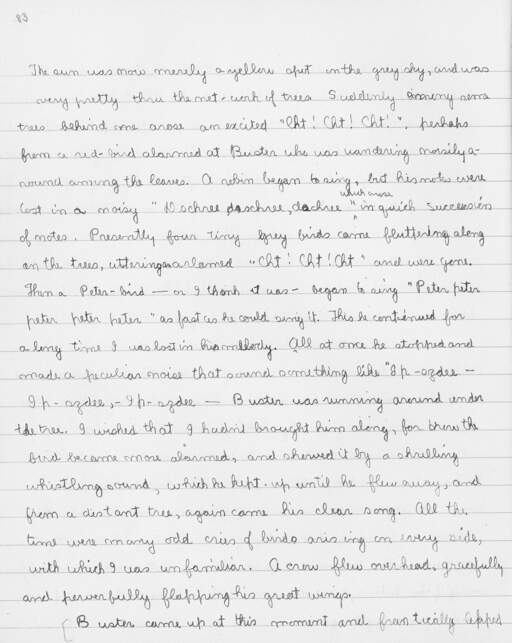 83
The sun was now merely a yellow spot in the grey sky, and was
very pretty thru the net-work of trees Suddenly among some
trees behind me arose an excited "Cht! Cht! Cht!", perhaps
from a red-bird alarmed at Buster who was wandering noisily a-
round among the leaves. A robin began to sing, but his notes were
which arose
lost in a noisy "Dschree, daschree, dachree", in quick succession
of notes. Presently four tiny grey birds came fluttering along
on the trees, uttering an alarmed "Cht! Cht! Cht" and were gone.
Then a Peter-bird — or I think it was — began to sing "Peter peter
peter peter peter" as fast as he could sing it. This he continued for
a long time I was lost in his melody. All at once he stopped and
made a peculiar noise that sound something like "Ip-szdee —
Ip-szdee,- Ip-szdee — Buster was running around under
the tree. I wished that I hadn't brought him along, for the
bird became more alarmed, and showed it by a shrilling
whistling sound, which he kept up until he flew away, and
from a distant tree, again came his clear song. All the
time were many odd cries of birds arising on every side,
with which I was unfamiliar. A crow flew overhead, gracefully
and powerfully flapping his great wings.
[Buster came up at this moment and frantically lapped